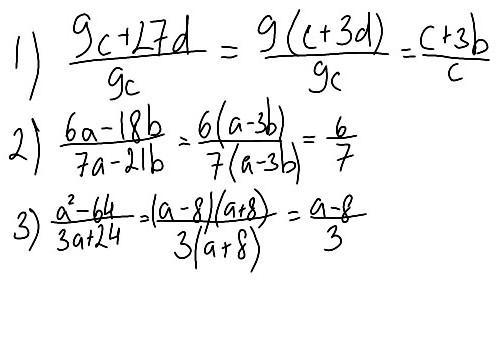 1) (9c+27d)/(9c) = (9(c+3d))/(9c) = (c+3b)/c
2) (6a-18b)/(7a-21b) = (6(a-3b))/(7(a-3b)) = 6/7
3) (a²-64)/(3a+24) = ((a-8)(a+8))/(3(a+8)) = (a-8)/3